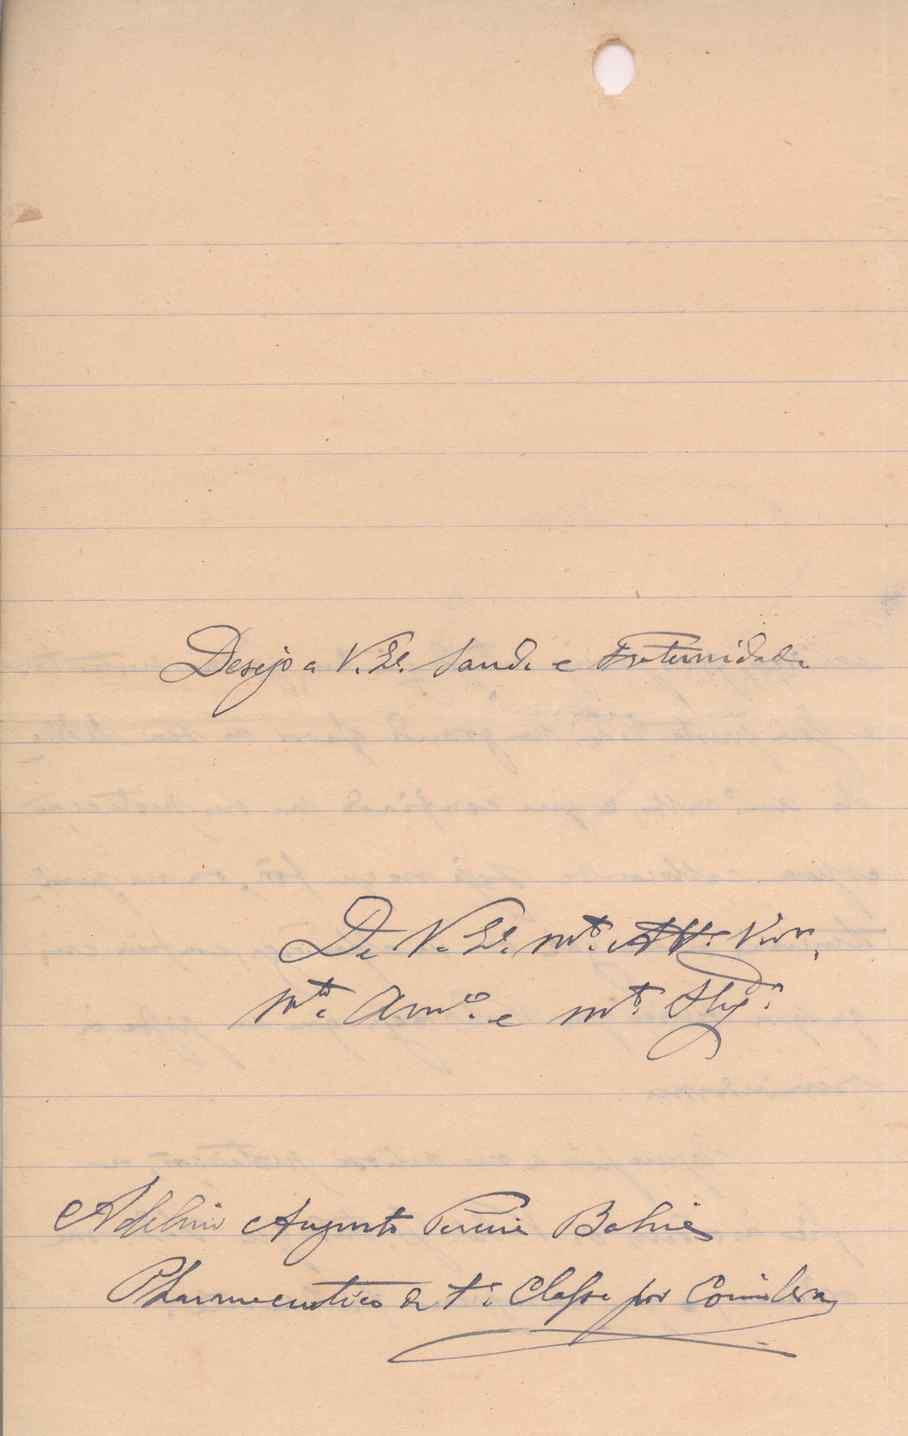 Desejo a V. Ex. Saude e Fraternidade
De V. Ex. mto. Att. Ven.
mto. Amo. e mto. Obg.
Adelino Augusto Pereira Bahia
Pharmaceutico de 1ª Classe por Coimbra